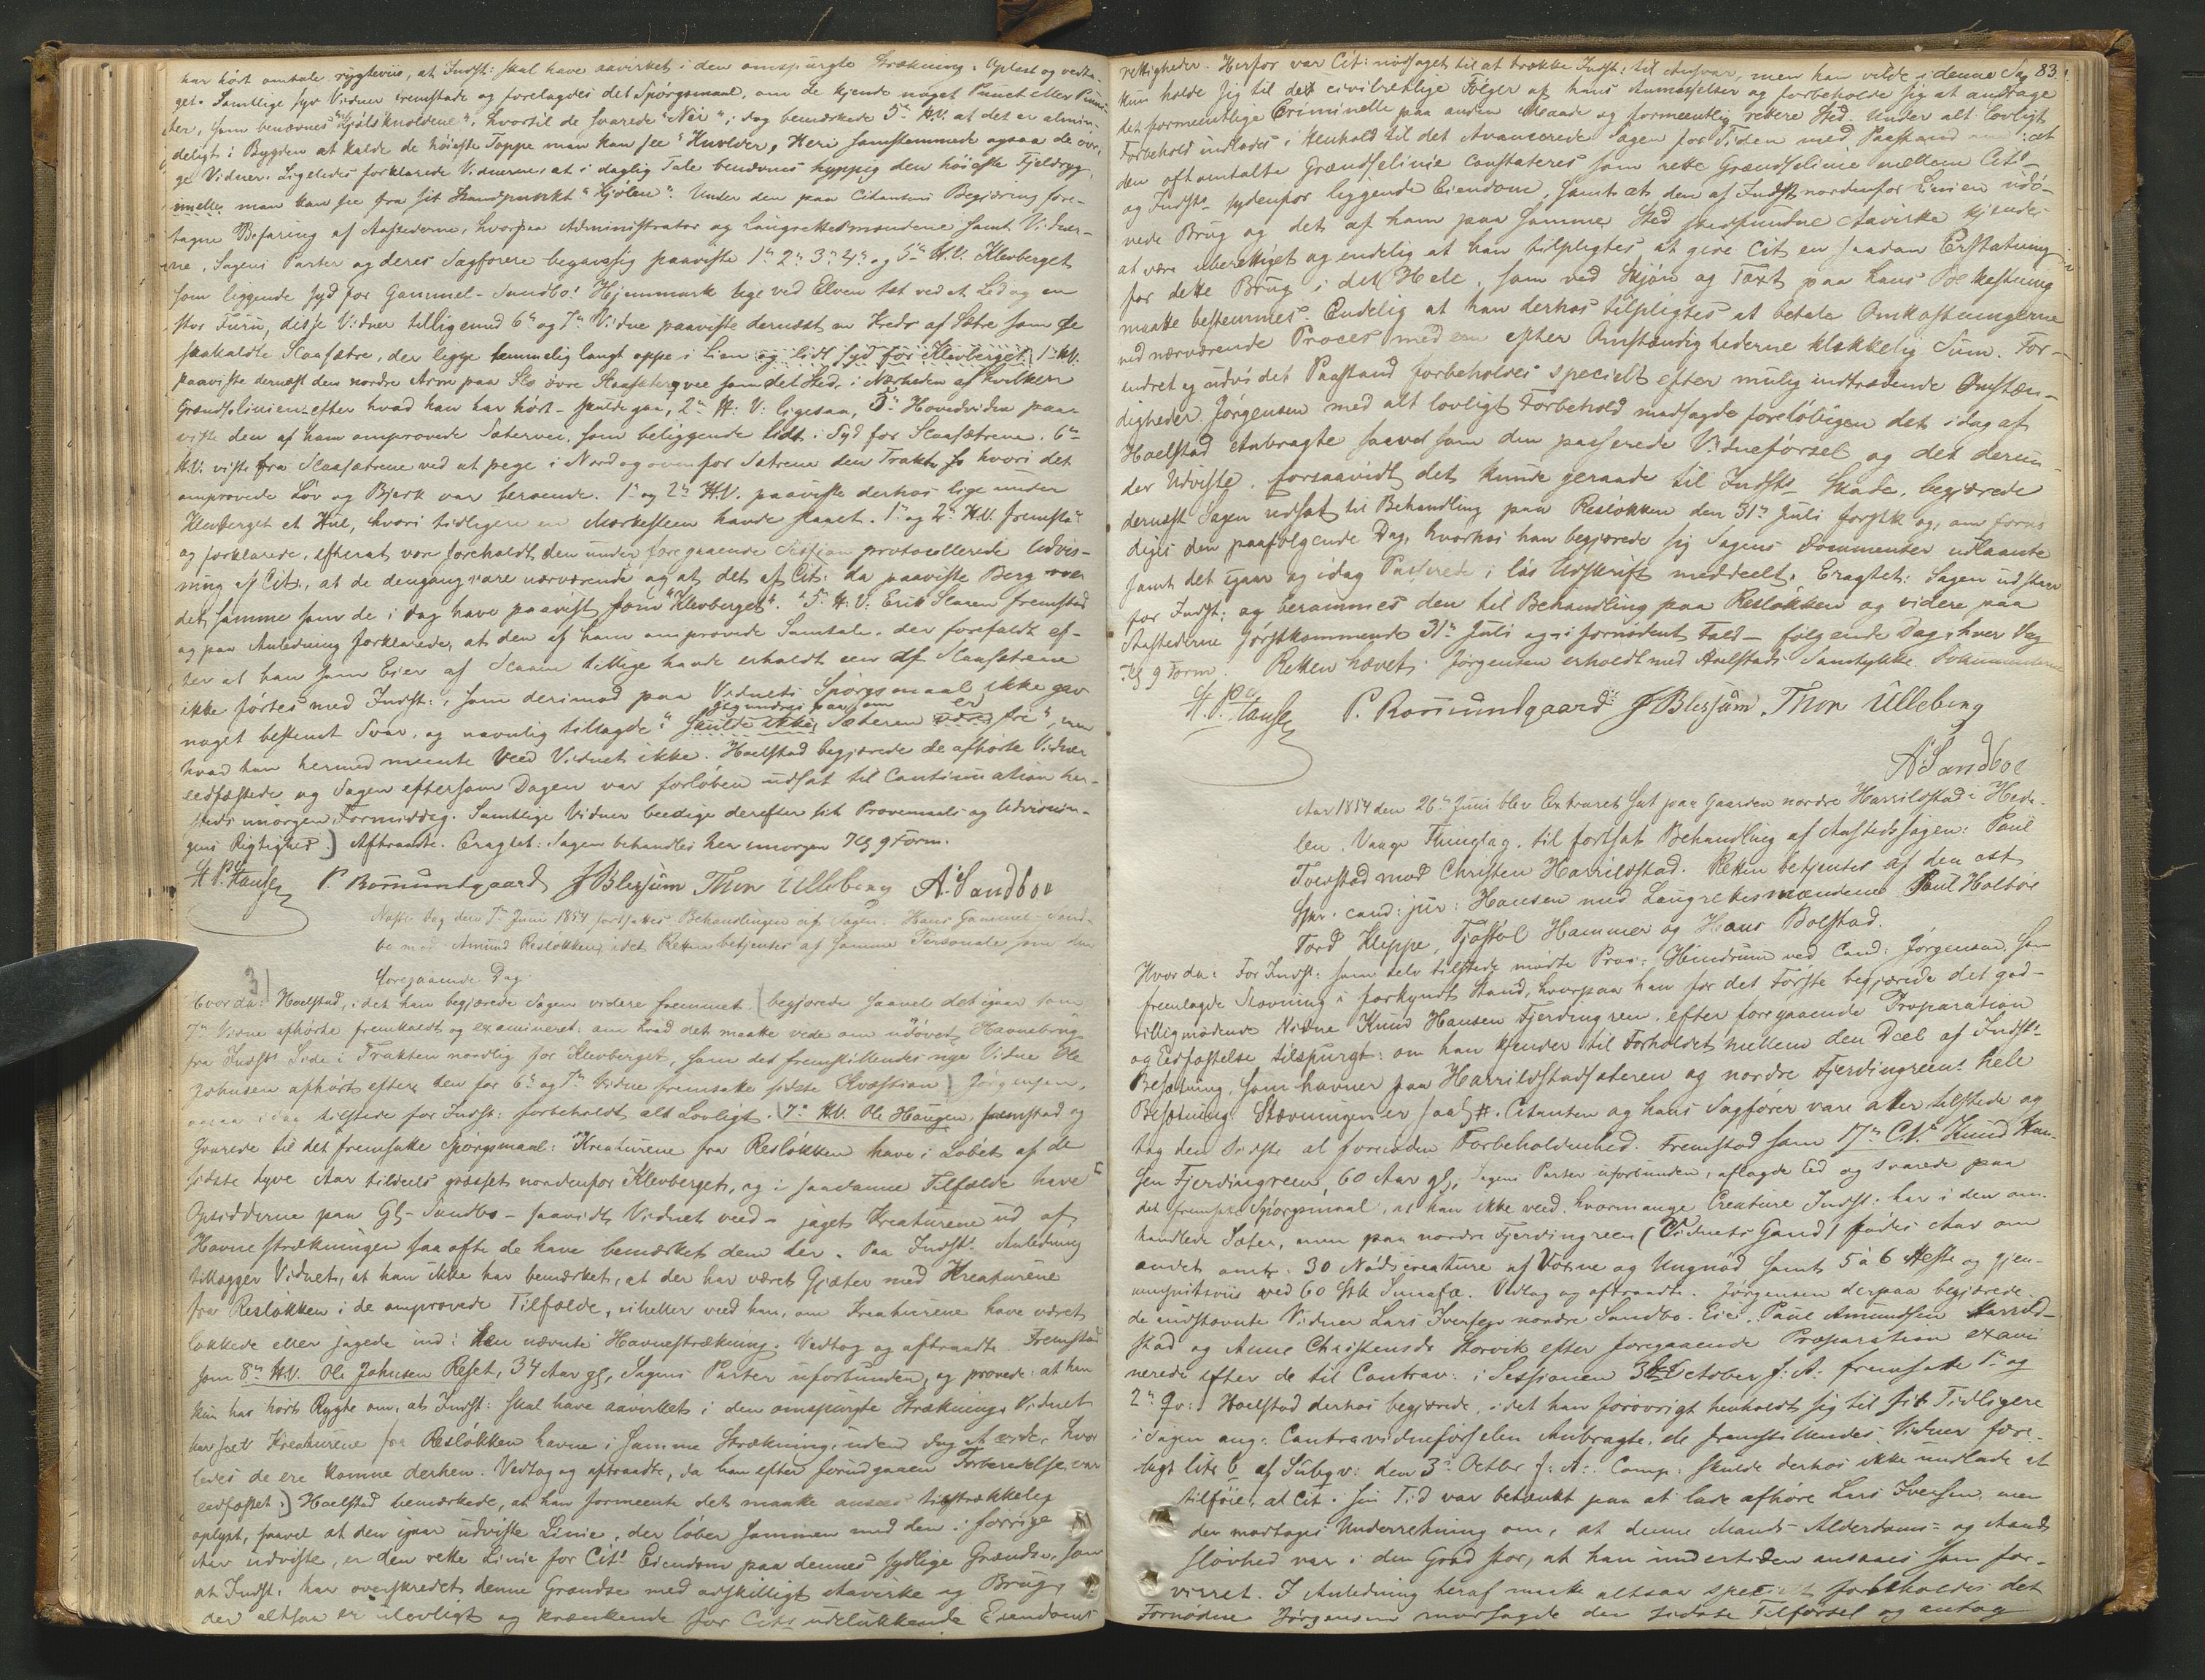 har hørt omtale rygteviis, at Indst: skal have aavirket i den omspurgte Strækning. Oplæst og vedta-
get. Samtlige syv Vidner fremstode og forelagdes det Spørgsmaal, om de kjende noget Punct eller Punc-
ter, som benævnes "Kjølsknoldene", hvortil de svarede "Nei"; dog bemærkede 5te H.V. at det er almin-
deligt i Bygden at kalde de høieste Toppe man kan see "Knolder". Heri samstemmede ogsaa de øvri-
ge Vidner. Ligeledes forklarede Vidnerne, at i daglig Tale benævnes hyppig den høieste Fjeldryg,
man kan see fra sit Standpunkt "Kjølen". Under den paa Citantens Begjæring fore-
tagne Befaring af Aastederne, hvorpaa Administrator og Laugrettesmændene samt Vidner-
ne, Sagens Parter og deres Sagførere begave sig paaviste 1te 2de 3de 4de og 5te H.V. Klevberget
som liggende syd for Gammel-Sandbo's Hjemmark lige ved Elven tæt ved et Led og en
stor Furu, disse Vidner tilligemed 6te og 7de Vidne paaviste dernæst en Kreds af Sætre som de
saakaldte Slaasætre, der ligge temmelig langt oppe i Lien og lidt syd for Klevberget. 1te H.V.
paaviste dernæst den nordre Arm paa Slo øvre Slaasætervei som det Sted, i Nærheden af hvilken
Grændselinien efter hvad han har hørt skulde gaa, 2de H: V: ligesaa, 3de Hovedvidne paa-
viste den af ham omprovede Sætervei, som beliggende lidt i Syd for Slaasætrene. 6te
H.V. viste fra Slaasætrene ved at pege i Nord og ovenfor Sætrene den Trakt hvori det
omprovede Løv og Bjerk var beroende. 1te og 2de H.V. paaviste derhos lige under
Klevberget et Hul, hvori tidligere en Markesteen havde staaet. 1te og 2de H.V. fremstod
og forklarede, efterat være foreholdt den under foregaaende Session protocollerede Udvis-
ning af Cit:, at de dengang vare nærværende og at det af Cit: da paaviste Berg var
det samme som de i dag have paavist som "Klevberget". 5te H.V. Erik Slaaen fremstod
og paa Anledning forklarede, at den af ham omprovede Samtale, der forefaldt ef-
ter at han som Eier af Slaaen tillige havde erholdt een af Slaasætrene
ikke førtes med Indst:, som derimod paa Vidnets Spørgsmaal ikke gav
noget bestemt Svar, og navnlig tillagde: "skulde ikke Sæteren er fri", men
hvad han hermed meente veed Vidnet ikke. Hoelstad begjærede de afhørte Vidner
eedfæstede og Sagen eftersom Dagen var forløben udsat til Continuation her-
steds imorgen Formiddag. Samtlige Vidner beedige derefter sit Provemaals og Udvisnin-
gens Rigtighed.) Aftraadte. Eragtet: Sagen behandles her imorgen Kl 9 Form.
H. P. Hansen P. Romundgaard J Blessum Thor Ulleberg A. Sandboe
Næste Dag den 7de Juni 1854 fortsattes Behandlingen af Sagen: Hans Gammel-Sand-
bo mod Amund Resløkken, idet Retten betjentes af samme Personale som den
foregaaende Dag.
3)
Hvorda: Hoelstad, idet han begjærede Sagen videre fremmet (begjærede saavel det igaar som
7de Vidne afhørte fremkaldt og examineret: om hvad det maatte vide om udøvet Havnebrug
fra Indst's Side i Trakten nordlig for Klevberget, som det fremstillendes nye Vidne Ole
Johnsen afhørt efter den for 6te og 7de Vidne fremsatte sidste Kvæstion) Jørgensen,
ogsaa idag tilstede for Indst: forbeholdt alt Lovligt. (7de H.V. Ole Haugen, fremstod og
svarede til det fremsatte Spørgsmaal: Kreaturene fra Resløkken have i Løbet af de
sidste tyve Aar tildeels græsset nordenfor Klevberget, og i saadanne Tilfælde have
Opsidderne paa Gl-Sandbo - saavidt Vidnet veed - jaget Kreaturene ud af
Havnestrækningen saa ofte de have bemærket dem der. Paa Indst's Anledning
tillægger Vidnet, at han ikke har bemærket, at der har været Gjæter med Kreaturene
fra Resløkken i de omprovede Tilfælde, eiheller veed han, om Kreaturene have været
lokkede eller jagede ind i den nævnte Havnestrækning. Vedtog og aftraadte. Fremstod
som 8de H.V. Ole Johnsen Reset, 34 Aar gl, Sagens Parter uforbunden, og provede: at han
kun har hørt Rygte om, at Indst: skal have aavirket i den omspurgte Strækning. Vidnet
har seet Kreaturene fra Resløkken havne i samme Strækning, uden dog at vide, hvor-
ledes de ere komne derhen. Vedtog og aftraadte, da han efter forudgaaen Forberedelse var
eedfæstet.) Hoelstad bemærkede, at han formeente det maatte ansees tilstrækkelig
oplyst, saavel at den igaar udviste Linie, der løber sammen med den i forrige
Aar udviste, er den rette Linie for Cit's Eiendom paa dennes sydlige Grændse, som
at Indst: har overskredet denne Grændse med adskilligt Aavirke og Brug,
der altsaa er ulovligt og krænkende for Cit's udelukkende Eiendoms-
83
rettigheder. Herfor var Cit: nødsaget til at trække Indst: til Ansvar, men han vilde i denne Sag
kun holde sig til det civilretlige Følger af hans Anmasselser og forbeholde sig at andrage
det formeentlige Criminelle paa anden Maade og formeentlig rettere Sted. Under alt lovligt
Forbehold indlodes i Henhold til det Avancerede Sagen for Tiden med Paastand: at
den oftomtalte Grændselinie constateres som rette Grændselinie mellem Cit's
og Indst's sydenfor liggende Eiendom, samt at den af Indst: nordenfor Linien udø-
vede Brug og det af ham paa samme Sted stedfundne Aavirke kjendes
at være uberettiget og endelig at han tilpligtes at give Cit en saadan Erstatning
for dette Brug i det Hele, som ved Skjøn og Taxt paa hans Bekostning
maatte bestemmes. Endelig at han derhos tilpligtes at betale Omkostningerne
ved nærværende Proces med en efter Omstændighederne klækkelig Sum. For-
andret og udvidet Paastand forbeholdes specielt efter mulig indtrædende Omstæn-
digheder. Jørgensen med alt lovligt Forbehold modsagde foreløbigen det idag af
Hoelstad Anbragte saavelsom den passerede Vidneførsel og det derun-
der Udviste, forsaavidt det kunde geraade til Indst's Skade, begjærede
dernæst Sagen udsat til Behandling paa Resløkken den 31te Juli førstk og, om forno-
diges den paafølgende Dag, hvorhos han begjærede sig Sagens Documenter udlaante
samt det igaar og idag Passerede i løs Udskrift meddeelt. Eragtet: Sagen udstaar
for Indst: og berammes den til Behandling paa Resløkken og videre paa
Aastederne førstkommende 31te Juli og i fornødent Fald - følgende Dag, hver Dag
Kl 9 Form. Retten hævet. Jørgensen erholdt med Hoelstads Samtykke Dokumenterne
H. P. Hansen P. Romundgaard J Blessum Thor Ulleberg
A Sandboe
Aar 1854 den 26de Juni blev Extraret sat paa Gaarden nordre Harrildstad i Heda-
len, Vaage Thinglag, til fortsat Behandling af Aastedssagen: Paul
Tverstad mod Christen Harrildstad. Retten betjentes af den cst
Skr. cand: jur: Hansen med Laugrettesmændene Paul Holtør
Tord Kleppe, Tjøstol Hammer og Hans Bolstad.
Hvorda: For Indst: som selv tilstede mødte Proc: Hindrum ved Cand: Jørgensen, som
fremlagde Stevning i forkyndt Stand, hvorpaa han for det Første begjærede det god-
villigmødende Vidne Knud Hansen Fjerdingreen, efter foregaaende Præparation
og Eedfæstelse tilspurgt: om han kjender til Forholdet mellem den Deel af Indst's
Besætning, som havner paa Harrildstadsæteren og nordre Fjerdingreens hele
Besætning. Stævningen er saal #. Citanten og hans Sagfører vare atter tilstede og
tog den Sidste al fornøden Forbeholdenhed. Fremstod som 17de C.V. Knud Han-
sen Fjerdingreen, 60 Aar gl, Sagens Parter uforbunden, aflagde Eed og svarede paa
det fremsatte Spørgsmaal, at han ikke veed, hvormange Creature Indst: har i den om-
handlede Sæter, men paa nordre Fjerdingreen (Vidnets Gaard) fødes Aar om
andet omtr. 30 Nødscreature af Voxne og Ungnød samt 5 à 6 Heste og gjen-
nemsnitsviis ved 60 Stk Smaafæ. Vedtog og aftraadte. Jørgensen derpaa begjærede
de indstævnte Vidner Lars Iversen nordre Sandbo-Eie, Paul Amundsen Harrild-
stad og Anne Christensdr Storvik efter foregaaende Præparation exami-
nerede efter de til Contrav: i Sessionen 3de October f: A: fremsatte 1te og
2de Qv: Hoelstad derhos begjærede, idet han forøvrigt henholdt sig til sit Tidligere
i Sagen ang: Contravidneførselen Anbragte, de fremstillendes Vidner fore-
lagt litr b af Subqv: den 3de Octbr f: A:. Comp: skulde derhos ikke undlade at
tilføie, at Cit: sin Tid var betænkt paa at lade afhøre Lars Iversen, men
der modtoges Underretning om, at denne Mands Alderdoms- og Aands-
sløvhed var i den Grad stor, at han undertiden ansaaes som for-
virret. I Anledning heraf maatte altsaa specielt forbeholdes det
Fornødne. Jørgensen modsagde den sidste Tilførsel og antog